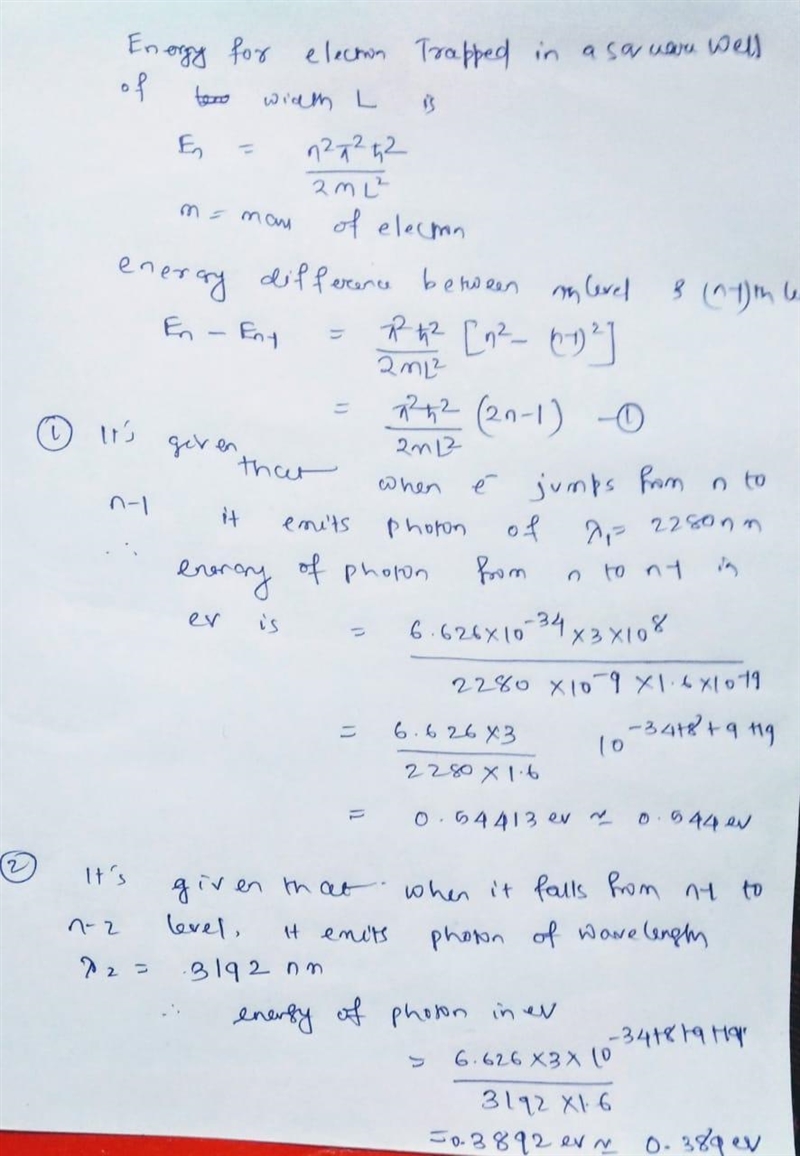 Energy for electron Trapped in a square well
of width L is
En = n²π²ħ² / 2mL²
m = mass of electron
energy difference between nth level & (n-1)th le
En - En-1 = π²ħ² / 2mL² [n² - (n-1)²]
= π²ħ² / 2mL² (2n-1) - ①
① It's given that when e⁻ jumps from n to
n-1 it emits photon of λ₁ = 2280 nm
∴ energy of photon from n to n-1 in
ev is = 6.626×10⁻³⁴ ×3×10⁸ / 2280 ×10⁻⁹ ×1.6×10⁻¹⁹
= 6.626×3 / 2280×1.6 10⁻³⁴⁺⁸⁺⁹⁺¹⁹
= 0.54413 ev ≈ 0.544 ev
② It's given that when it falls from n-1 to
n-2 level, it emits photon of wavelength
λ₂ = 3192 nm
∴ energy of photon in ev
= 6.626×3×10⁻³⁴⁺⁸⁺⁹⁺¹⁹ / 3192×1.6
= 0.3892 ev ≈ 0.389 ev